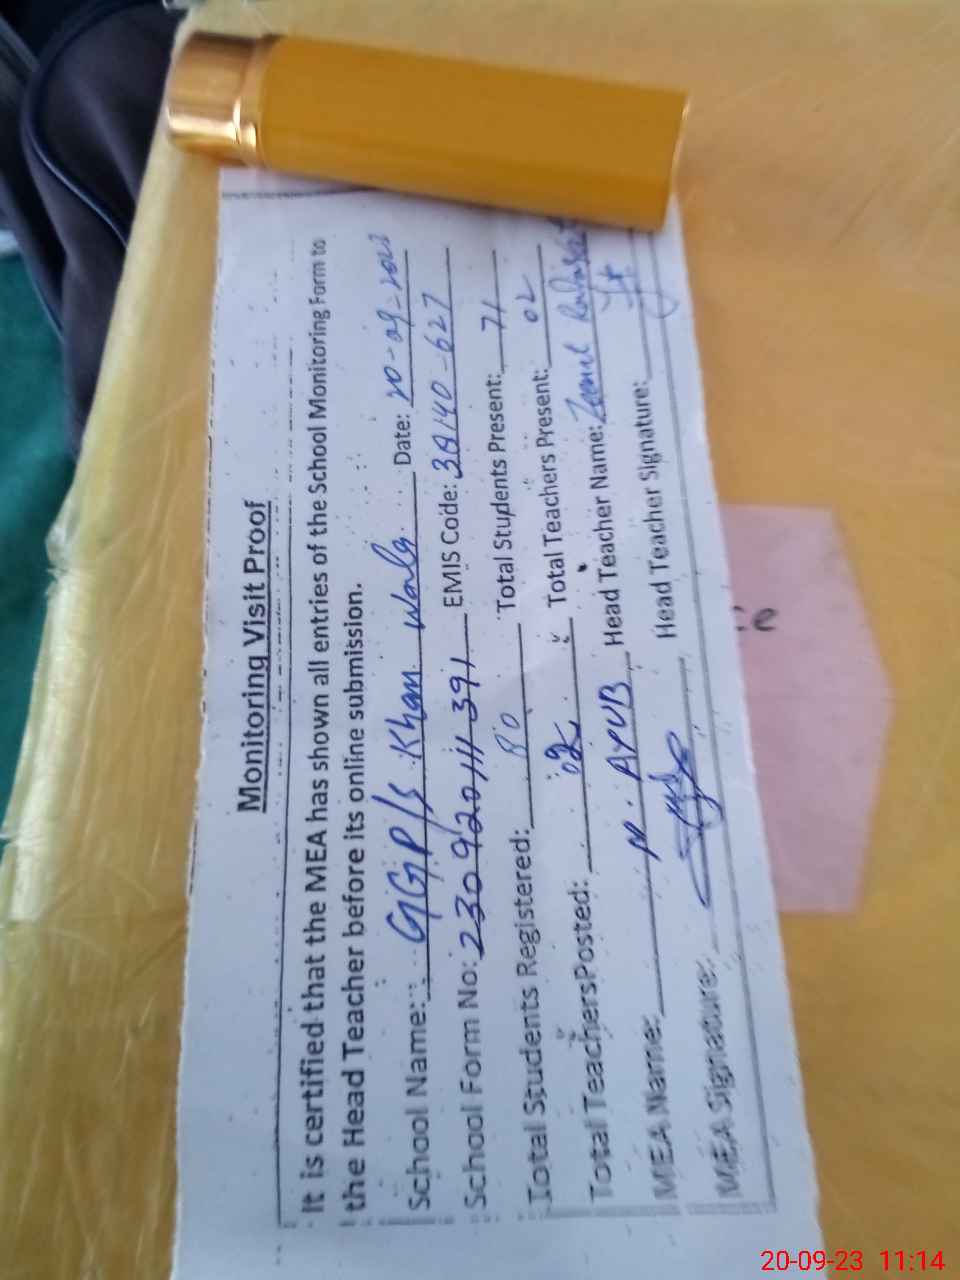 Monitoring Visit Proof
It is certified that the MEA has shown all entries of the School Monitoring Form to
the Head Teacher before its online submission.
School Name: GGP/S Khan Wala Date: 20-09-2023
School Form No: 230920111391 EMIS Code: 38140-627
Total Students Registered: 80 Total Students Present: 71
Total Teachers Posted: 02 Total Teachers Present: 02
MEA Name: M. AYUB Head Teacher Name:
MEA Signature: Head Teacher Signature:
ce
20-09-23 11:14